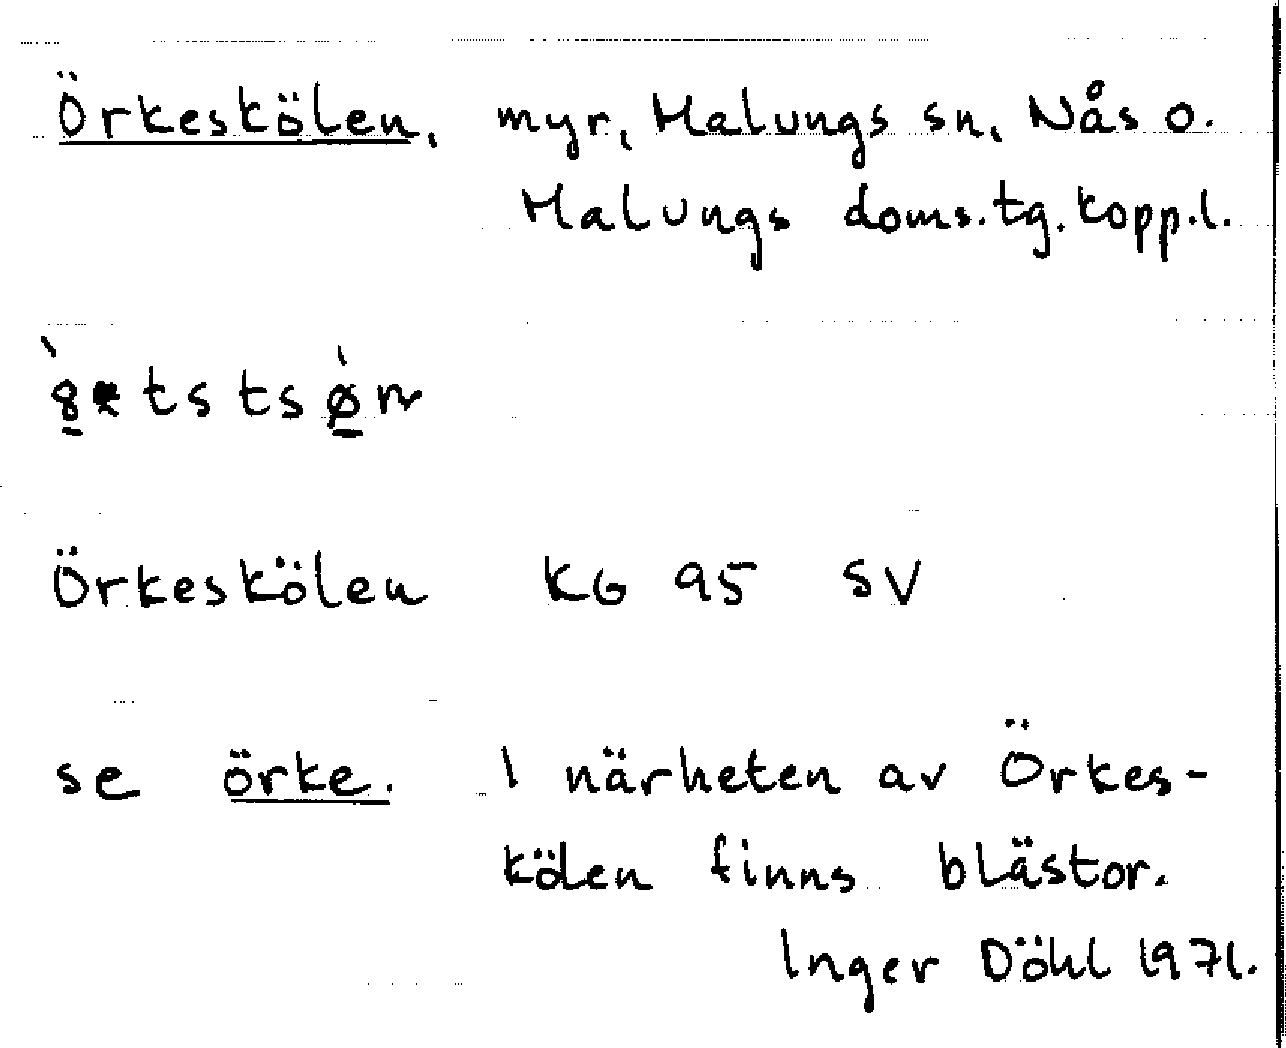 Örkeskölen, myr, Malungs sn, Nås o.
Malungs doms.tg. Kopp.l.
Örkeskölen KG 95 SV
se örke. I närheten av Örkes-
kölen finns blästor.
Inger Döhl 1971.